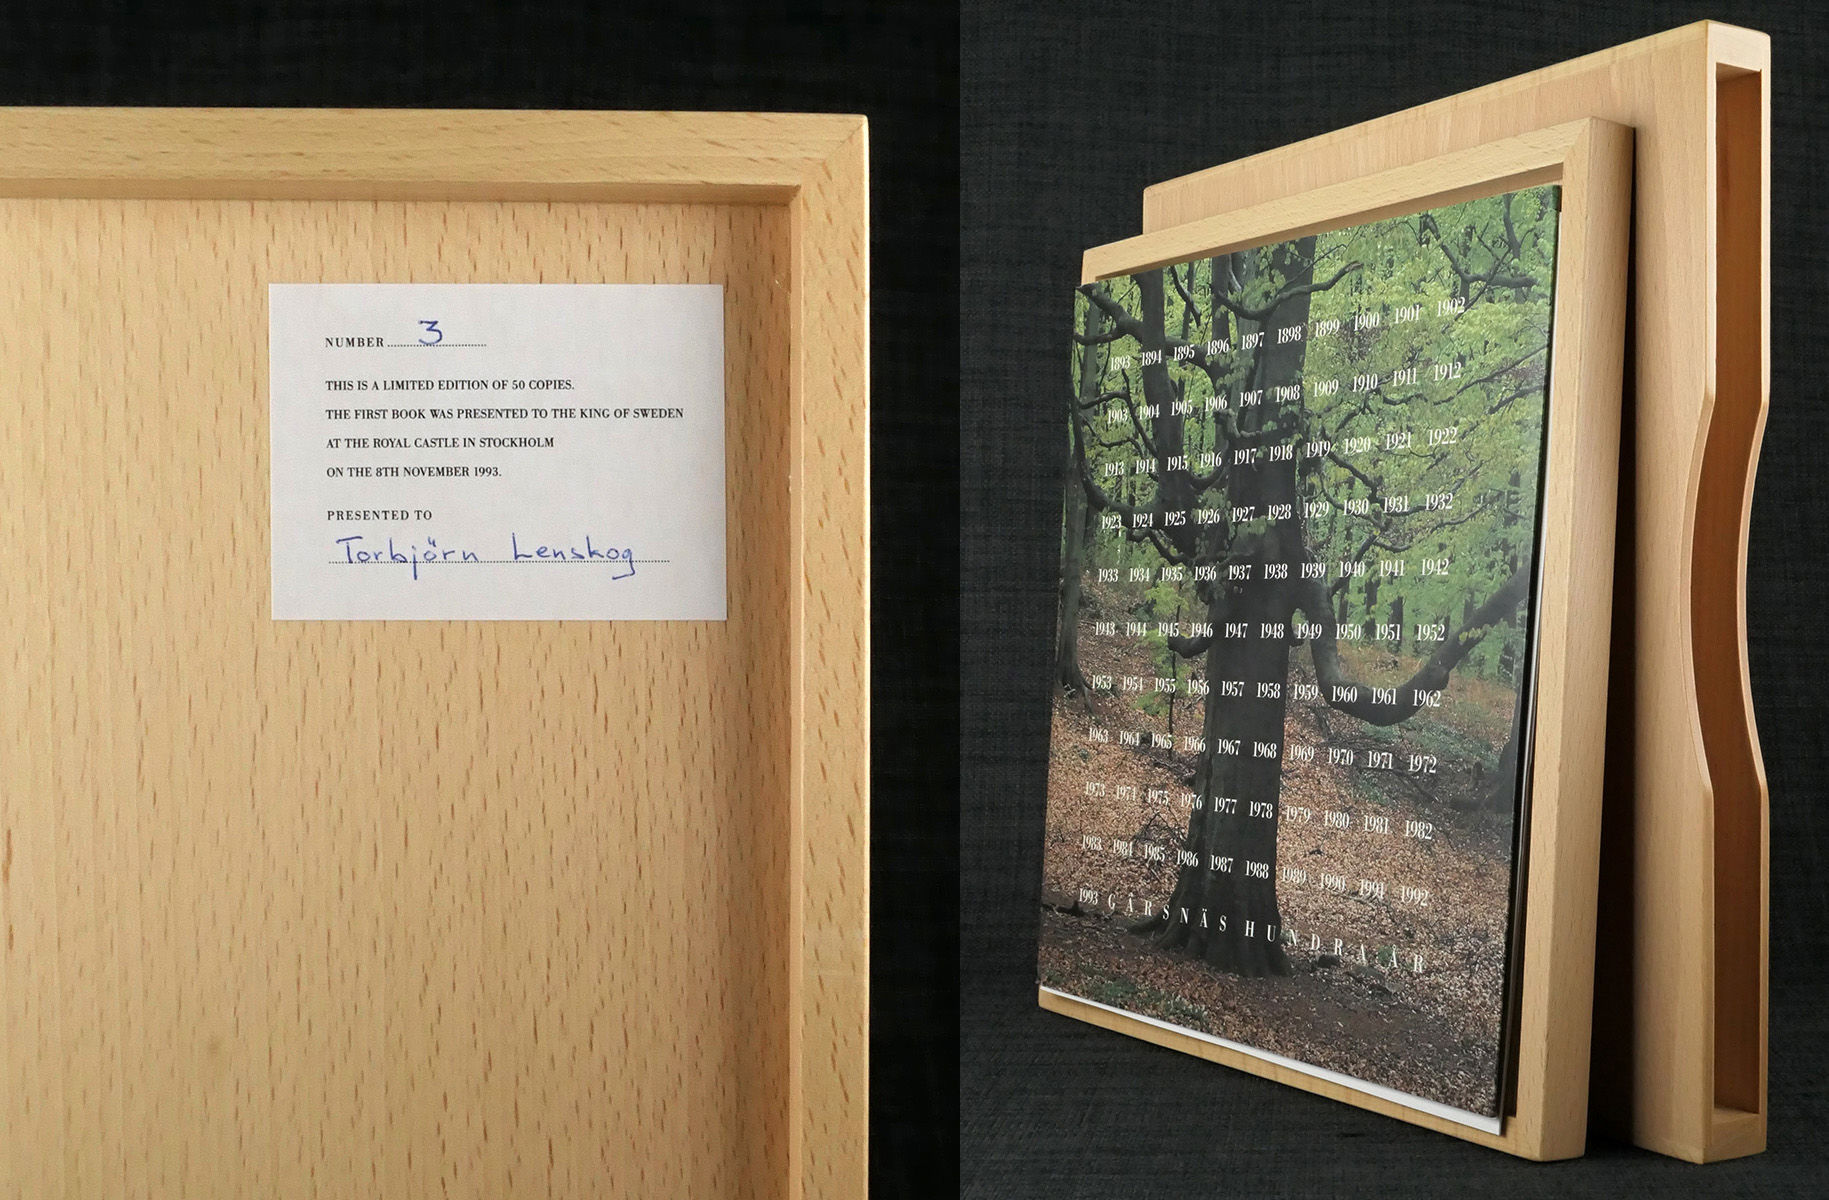 NUMBER 3
THIS IS A LIMITED EDITION OF 50 COPIES.
THE FIRST BOOK WAS PRESENTED TO THE KING OF SWEDEN
AT THE ROYAL CASTLE IN STOCKHOLM
ON THE 8TH NOVEMBER 1993.
PRESENTED TO
Torbjörn Lenskog
1893 1894 1895 1896 1897 1898 1899 1900 1901 1902
1903 1904 1905 1906 1907 1908 1909 1910 1911 1912
1913 1914 1915 1916 1917 1918 1919 1920 1921 1922
1923 1924 1925 1926 1927 1928 1929 1930 1931 1932
1933 1934 1935 1936 1937 1938 1939 1940 1941 1942
1943 1944 1945 1946 1947 1948 1949 1950 1951 1952
1953 1954 1955 1956 1957 1958 1959 1960 1961 1962
1963 1964 1965 1966 1967 1968 1969 1970 1971 1972
1973 1974 1975 1976 1977 1978 1979 1980 1981 1982
1983 1984 1985 1986 1987 1988 1989 1990 1991 1992
1993 GÄRSNÄS HUNDRA ÅR